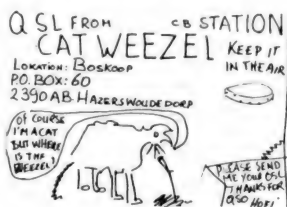 QSL FROM CB STATION
CAT WEEZEL
KEEP IT
IN THE AIR
LOKATION: BOSKOOP
P.O. BOX: 60
2390 AB HAZERSWOUDE DORP
OF COURSE
I'M A CAT
BUT WHERE
IS THE
WEEZEL?
PLEASE SEND
ME YOUR QSL
THANKS FOR
QSO
HOFI